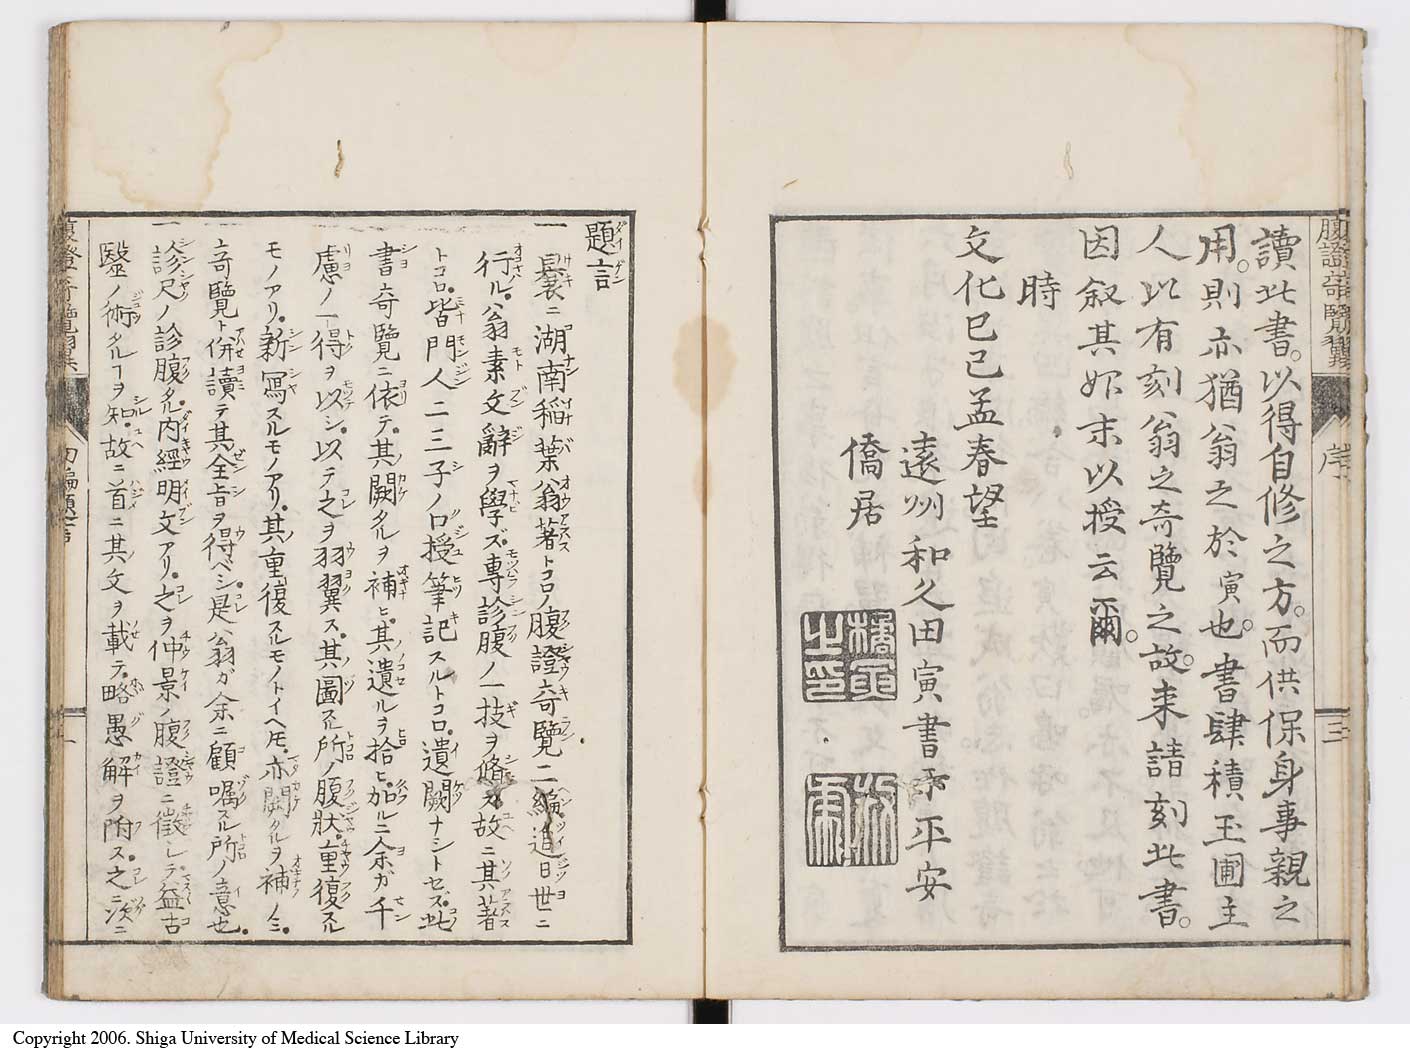 腹證奇覽翼
序
三
讀此書。以得自修之方。而供保身事親之
用。則亦猶翁之於寅也。書肆積玉圃主
人以有刻翁之奇覽之故。来請刻此書。
因叙其㛐末以授云爾。
時
文化己巳孟春望
遠州和久田寅書于平安
僑居
題言
一曩ニ湖南稲葉翁著トコロノ腹證奇覽二編追日世ニ
行ル。翁素文辭ヲ學ズ。專診腹ノ一技ヲ脩ス。故ニ其著
トコロ。皆門人二三子ノ口授筆記スルトコロ。遺闕ナシトセズ。此
書奇覽ニ依テ。其闕タルヲ補ヒ。其遺ルヲ拾ヒ。加ルニ余ガ千
慮ノ一得ヲ以シ。以テ之ヲ羽翼ス。其圖スル所ノ腹狀。重復スル
モノアリ。新寫スルモノアリ。其重復スルモノトイヘ𪜈。亦闕タルヲ補ノミ。
奇覽ト併讀テ其全旨ヲ得ベシ。是翁ガ余ニ顧嘱スル所ノ意也。
一診尺ノ診腹タル。内經明文アリ。之ヲ仲景ノ腹證ニ徴シテ。益古
醫ノ術タルヿヲ知。故ニ首ニ其文ヲ載テ。略愚解ヲ附ス。之ニ次ニ
腹證奇覽翼
初編題言
一
Copyright 2006. Shiga University of Medical Science Library